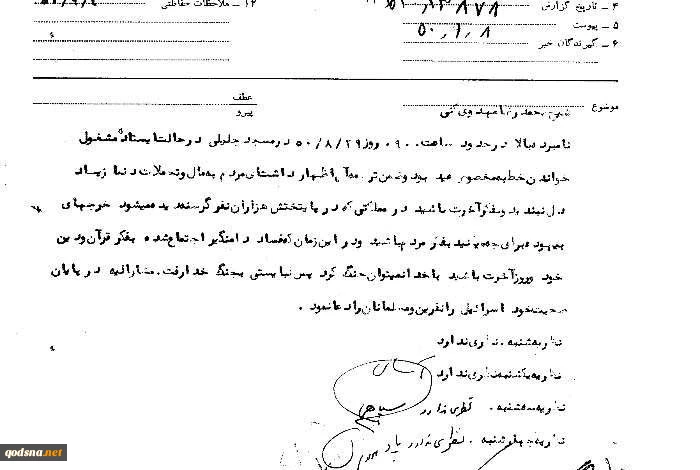 ۴ ـ تاریخ گزارش
۱۲ ـ ملاحظات حفاظتی
۵ ـ پیوست
۵۰/۹/۸
۶ ـ گیرندگان خبر
موضوع شیخ محمدرضا مهدوی کنی
عطف
پیرو
نامبرده بالا در حدود ساعت ۰۹۰۰ روز ۵۰/۸/۲۹ در مسجد جلیلی در حالت ایستاده مشغول
خواندن خطبه مخصوص عید بود و ضمن ترجمه آن اظهار داشت ای مردم به مال و تجملات دنیا زیاد
دل نبندید و بفکر آخرت باشید در مملکتی که در پایتختش هزاران نفر گرسنه دیده میشود خرجهای
بیهوده برای چه میکنید بفکر مردم باشید و در این زمان که فساد دامنگیر اجتماع شده بفکر قرآن و دین
خود و روز آخرت باشید با خدا نمیتوان جنگ کرد پس نبایستی بجنگ خدا رفت. مشارالیه در پایان
صحبت خود اسرائیل را نفرین و مسلمانان را دعا نمود.
نظریه شنبه. نظری ندارد
نظریه یکشنبه نظری ندارد
نظریه سه‌شنبه. نظری ندارد
نظریه چهارشنبه. نظری ندارد
qodsna.net